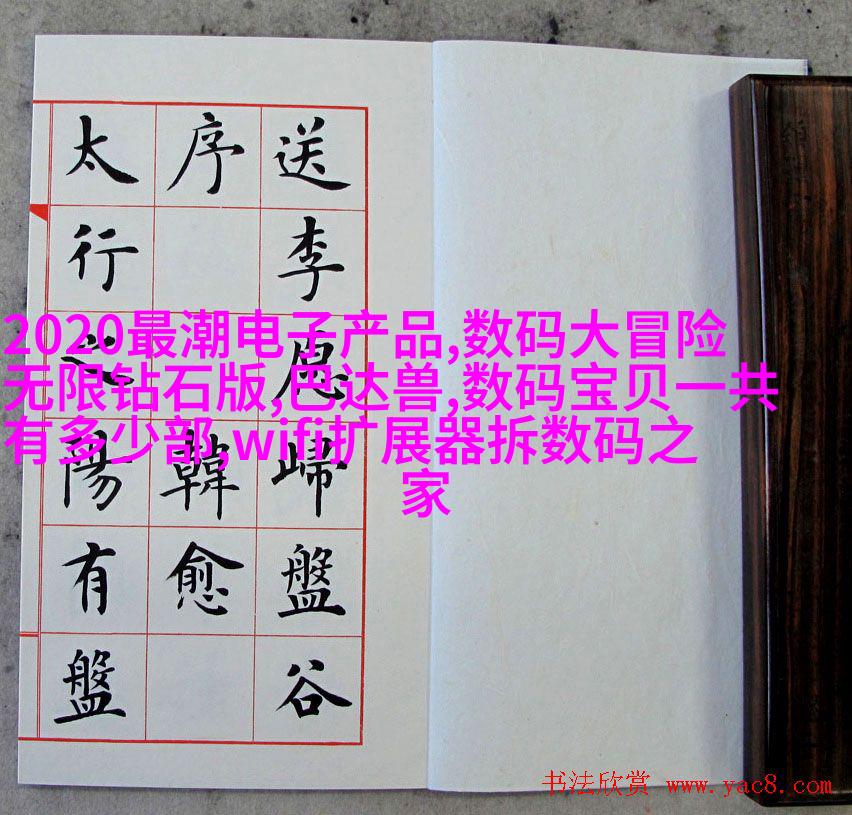 送李愿歸盤谷
序韓愈
太行之陽有盤
2020最潮电子产品,数码大冒险
无限钻石版,巴达兽,数码宝贝一共
有多少部,wifi扩展器拆数码之
家
书法欣赏 www.yac8.com